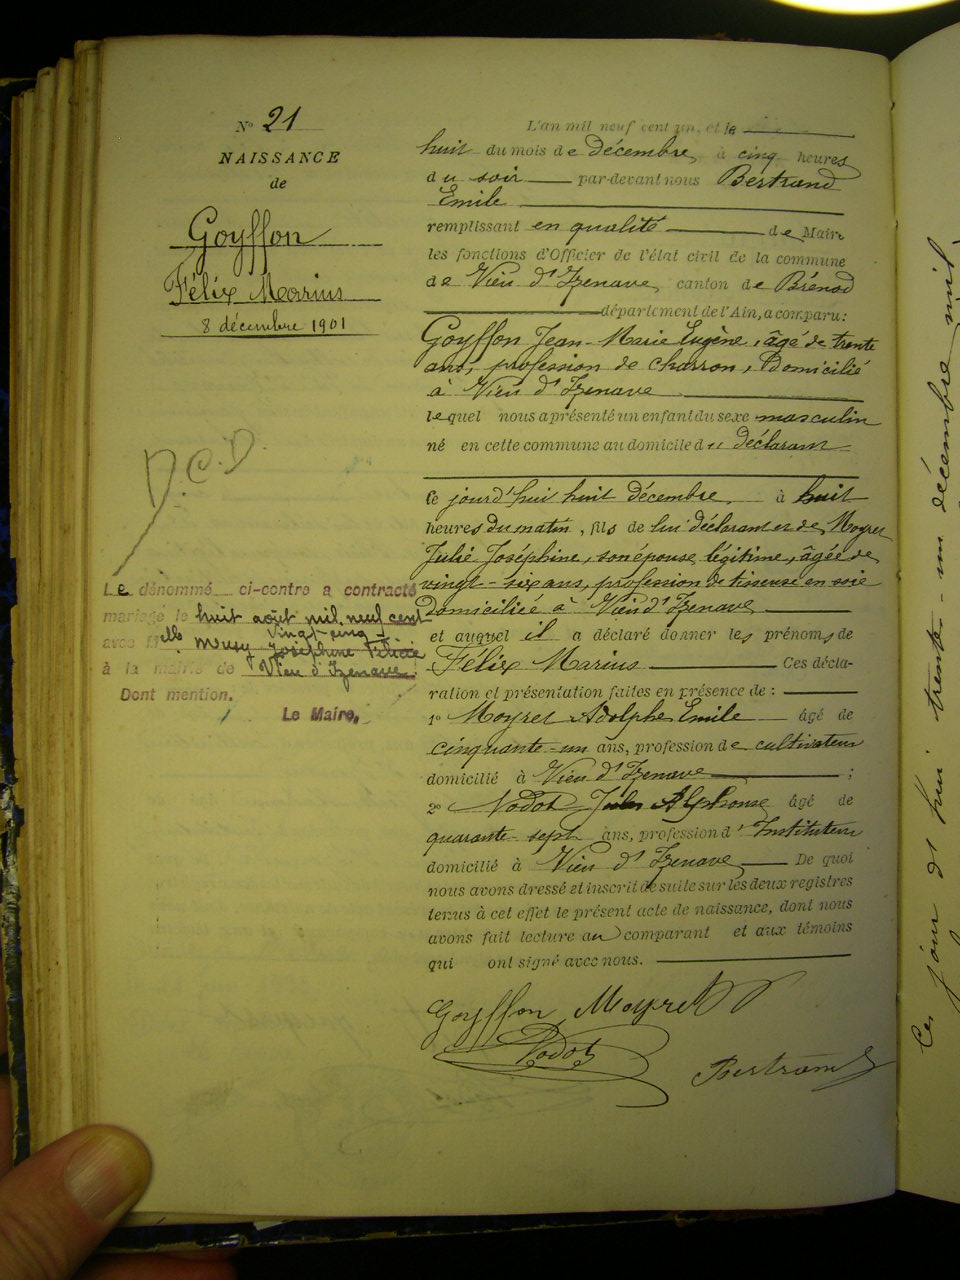 N° 21
NAISSANCE
de
Goyffon
Félix Marius
8 décembre 1901
D.C.D.
Le dénommé ci-contre a contracté
mariage le huit août mil neuf cent
vingt-cinq
avec Melle Joséphine Félicie
à la mairie de Vieu d'Izenave.
Dont mention.
Le Maire,
L'an mil neuf cent un, et le
huit du mois de décembre, à cinq heures
du soir par-devant nous Bertrand
Emile
remplissant en qualité de Maire
les fonctions d'Officier de l'état civil de la commune
de Vieu d'Izenave, canton de Brénod
département de l'Ain, a comparu:
Goyffon Jean-Marie Eugène, âgé de trente
ans, profession de charron, Domicilié
à Vieu d'Izenave
lequel nous a présenté un enfant du sexe masculin
né en cette commune au domicile du déclarant
ce jourd'hui huit décembre à huit
heures du matin, fils de lui déclarant et de Moyret
Julie Joséphine, son épouse légitime, âgée de
vingt-six ans, profession de tisseuse en soie
Domiciliée à Vieu d'Izenave
et auquel il a déclaré donner les prénoms de
Félix Marius Ces décla-
ration et présentation faites en présence de :
1° Moyret Adolphe Emile âgé de
cinquante-un ans, profession de cultivateur
domicilié à Vieu d'Izenave ;
2° Nodot Jules Alphonse âgé de
quarante-sept ans, profession d'Instituteur
domicilié à Vieu d'Izenave De quoi
nous avons dressé et inscrit de suite sur les deux registres
tenus à cet effet le présent acte de naissance, dont nous
avons fait lecture au comparant et aux témoins
qui ont signé avec nous.
Goyffon Moyret
Nodot
Bertrand
Ce jour d'hui trente-un décembre mil